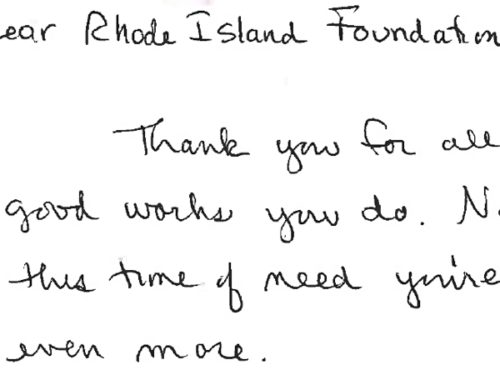 ear Rhode Island Foundation
Thank you for all
good works you do. N.
this time of need you're
even more.